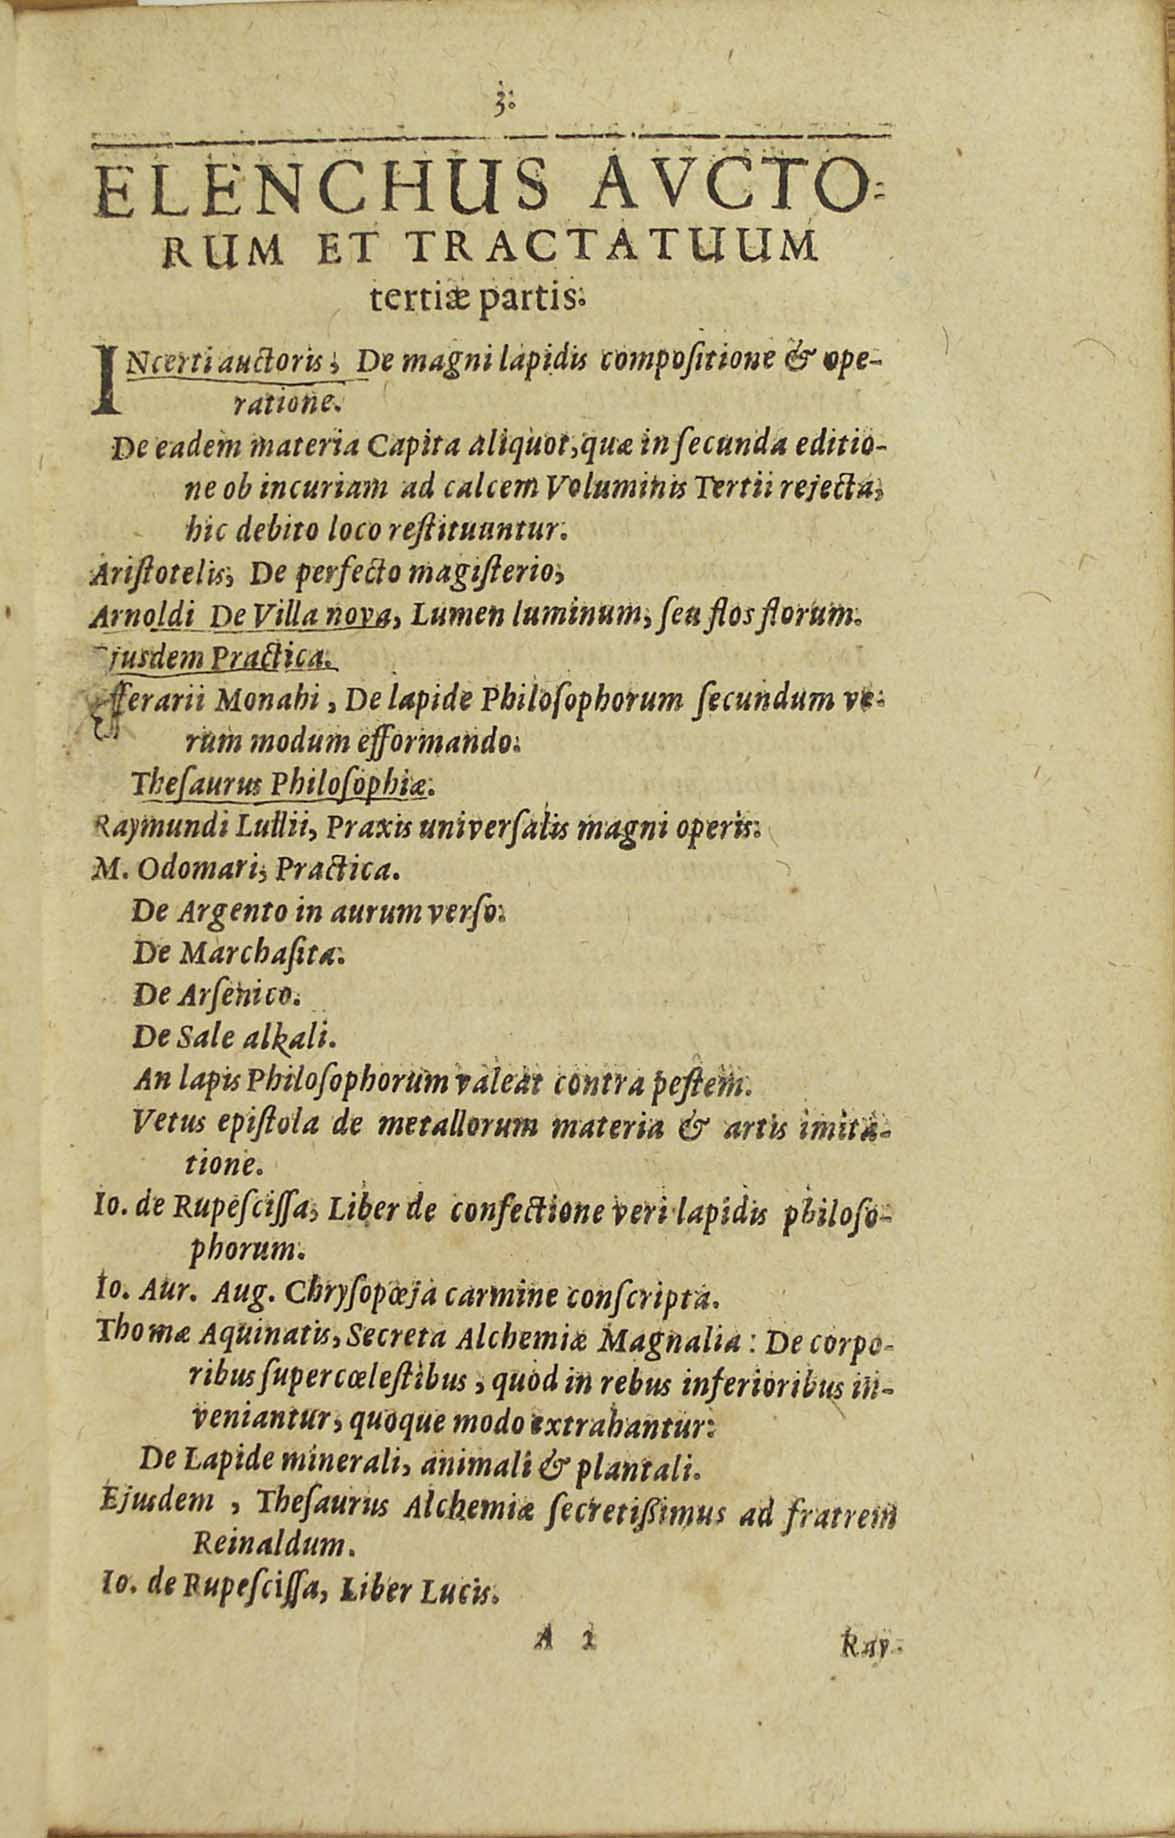 3.
ELENCHUS AVCTO-
RUM ET TRACTATUUM
tertiæ partis.
INcerti auctoris, De magni lapidis compoſitione & ope-
ratione.
De eadem materia Capita aliquot, quæ in ſecunda editio-
ne ob incuriam ad calcem Voluminis Tertii rejecta,
hic debito loco reſtituuntur.
Ariſtotelis, De perfecto magiſterio,
Arnoldi De Villa nova, Lumen luminum, ſeu flos florum.
Ejusdem Practica.
Efferarii Monahi, De lapide Philoſophorum ſecundum ve-
rum modum efformando.
Theſaurus Philoſophiæ.
Raymundi Lullii, Praxis univerſalis magni operis.
M. Odomari, Practica.
De Argento in aurum verſo.
De Marchaſita.
De Arſenico.
De Sale alkali.
An lapis Philoſophorum valeat contra peſtem.
Vetus epiſtola de metallorum materia & artis imita-
tione.
Io. de Rupeſciſſa, Liber de confectione veri lapidis philoſo-
phorum.
Io. Aur. Aug. Chryſopœja carmine conſcripta.
Thomæ Aquinatis, Secreta Alchemiæ Magnalia: De corpo-
ribus ſupercœleſtibus, quod in rebus inferioribus in-
veniantur, quoque modo extrahantur.
De Lapide minerali, animali & plantali.
Ejusdem, Theſaurus Alchemiæ ſecretiſſimus ad fratrem
Reinaldum.
Io. de Rupeſciſſa, Liber Lucis.
A 2
Ray-